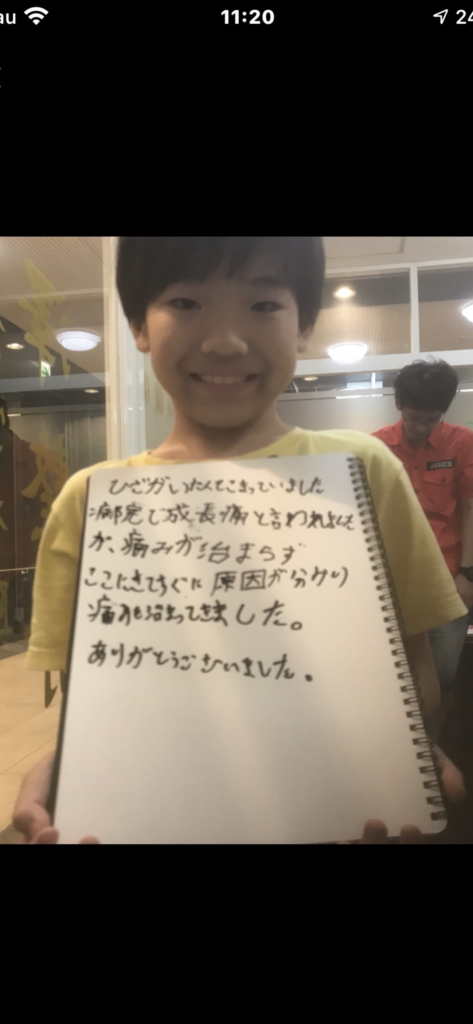 au
11:20
24
ひざがいたくてこまっていました
病院で成長痛と言われました
が、痛みが治まらず
ここにきてすぐに原因が分かり
痛みも治まってきました。
ありがとうございました。